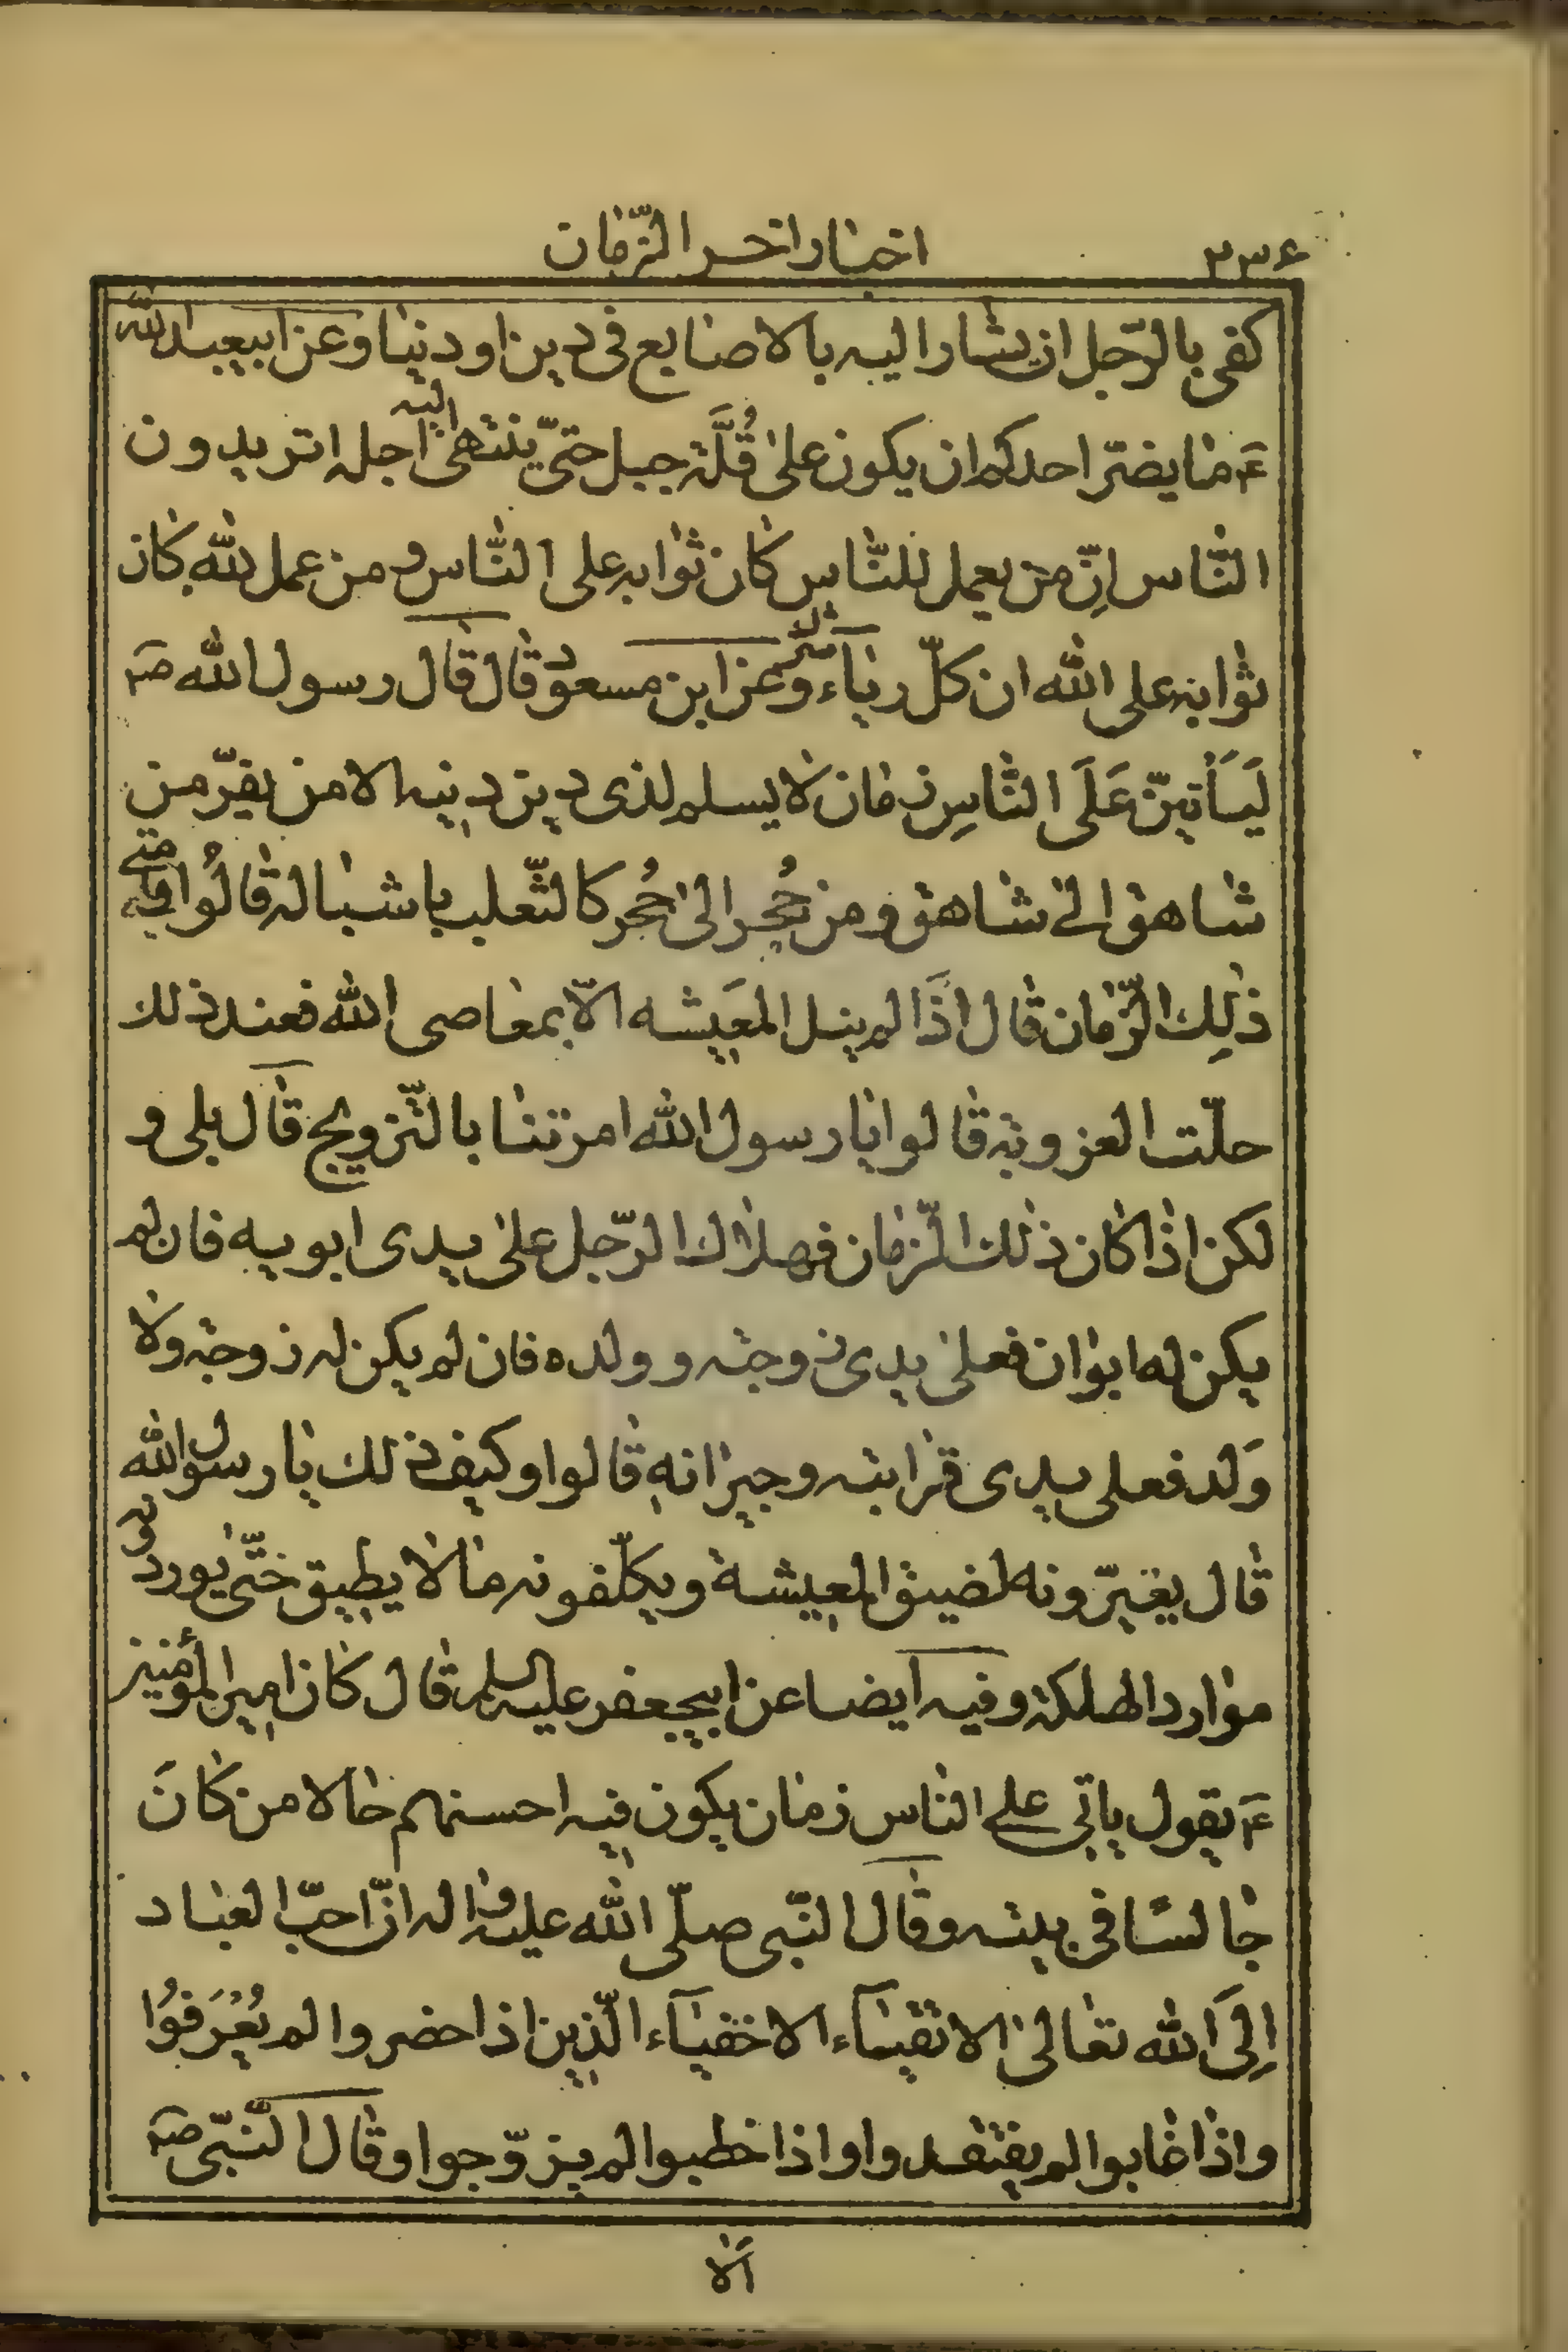 اخبار اخر الزّمان ٣٣۶
كفى بالرّجل ان يشار اليه بالاصابع فى دين او دنيا و عن ابيعبد الله
ع ما يضرّ احدكم ان يكون على قُلَّة جبل حتّى ينتهى اليه اجله اتريدون
النّاس انّ من يعمل للنّاس كان ثوابه على النّاس و من عمل لله كان
ثوابه على الله ان كلّ رياء شرك و عن ابن مسعود قال قال رسول الله ص
لَيَأتينّ عَلَى النّاسِ زمان لا يسلم لذى دين دينه الا من يفرّ من
شاهق الى شاهق و من حُجر الى حُجر كالثّعلب باشباله قالُوا و متى
ذلِك الزّمان قال اذَا لم ينل المعَيشه الاّ بمعاصى الله فعند ذلك
حلّت العزوبة قالوا يا رسول الله امرتنا بالتّزويج قال بلى و
لكن اذا كان ذلك الزّمان فهلاك الرّجل على يدى ابويه فان لم
يكن له ابوان فعلى يدى زوجته و ولده فان لم يكن له زوجة ولا
وَلد فعلى يدى قرابته وجيرانهِ قالوا وكيف ذلك يا رسول الله
قال يغيّرونه لضيق المعيشة ويكلّفونه ما لا يطيق حتّى يوردونه
موارد الهلكة و فيه ايضا عن ابيجعفر عليه السلم قال كان امير المؤمنين
ع يقول ياتى على الناس زمان يكون فيه احسنهم حالا من كانَ
جالسًا فى بيته وقال النّبى صلّى الله عليه واله انّ احبّ العباد
اِلَى الله تعالى الاتقياء الاخفياء الّذين اذا حضروا لم يُعْرَفوُا
واذا غابوا لم يفتقدوا واذا خطبوا لم يزوّجوا وقال النّبىّ ص
الا